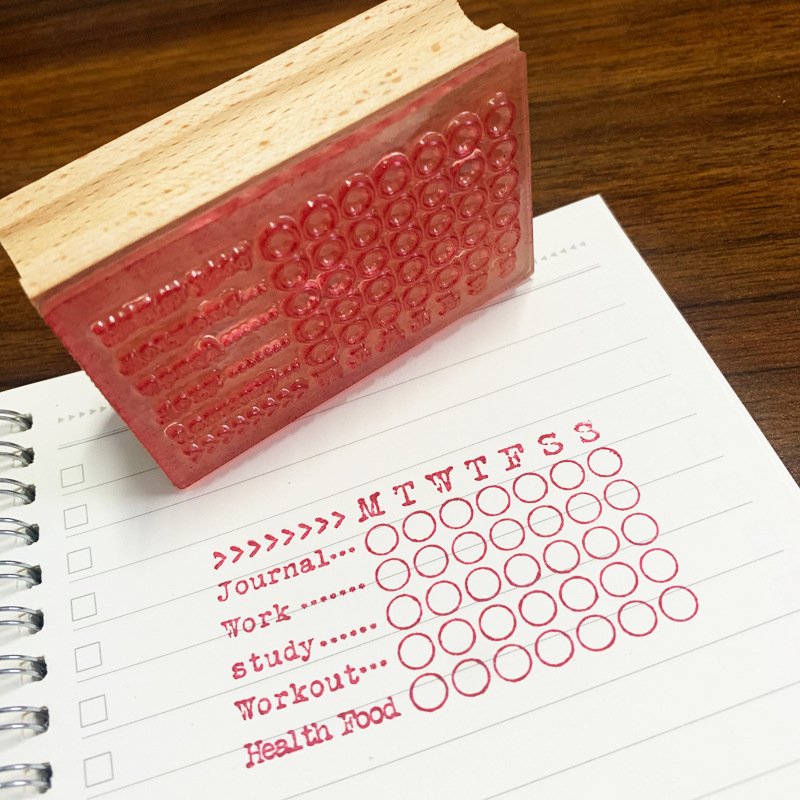 >>>>>>>> M T W T F S S
Journal...
Work .......
study......
Workout...
Health Food